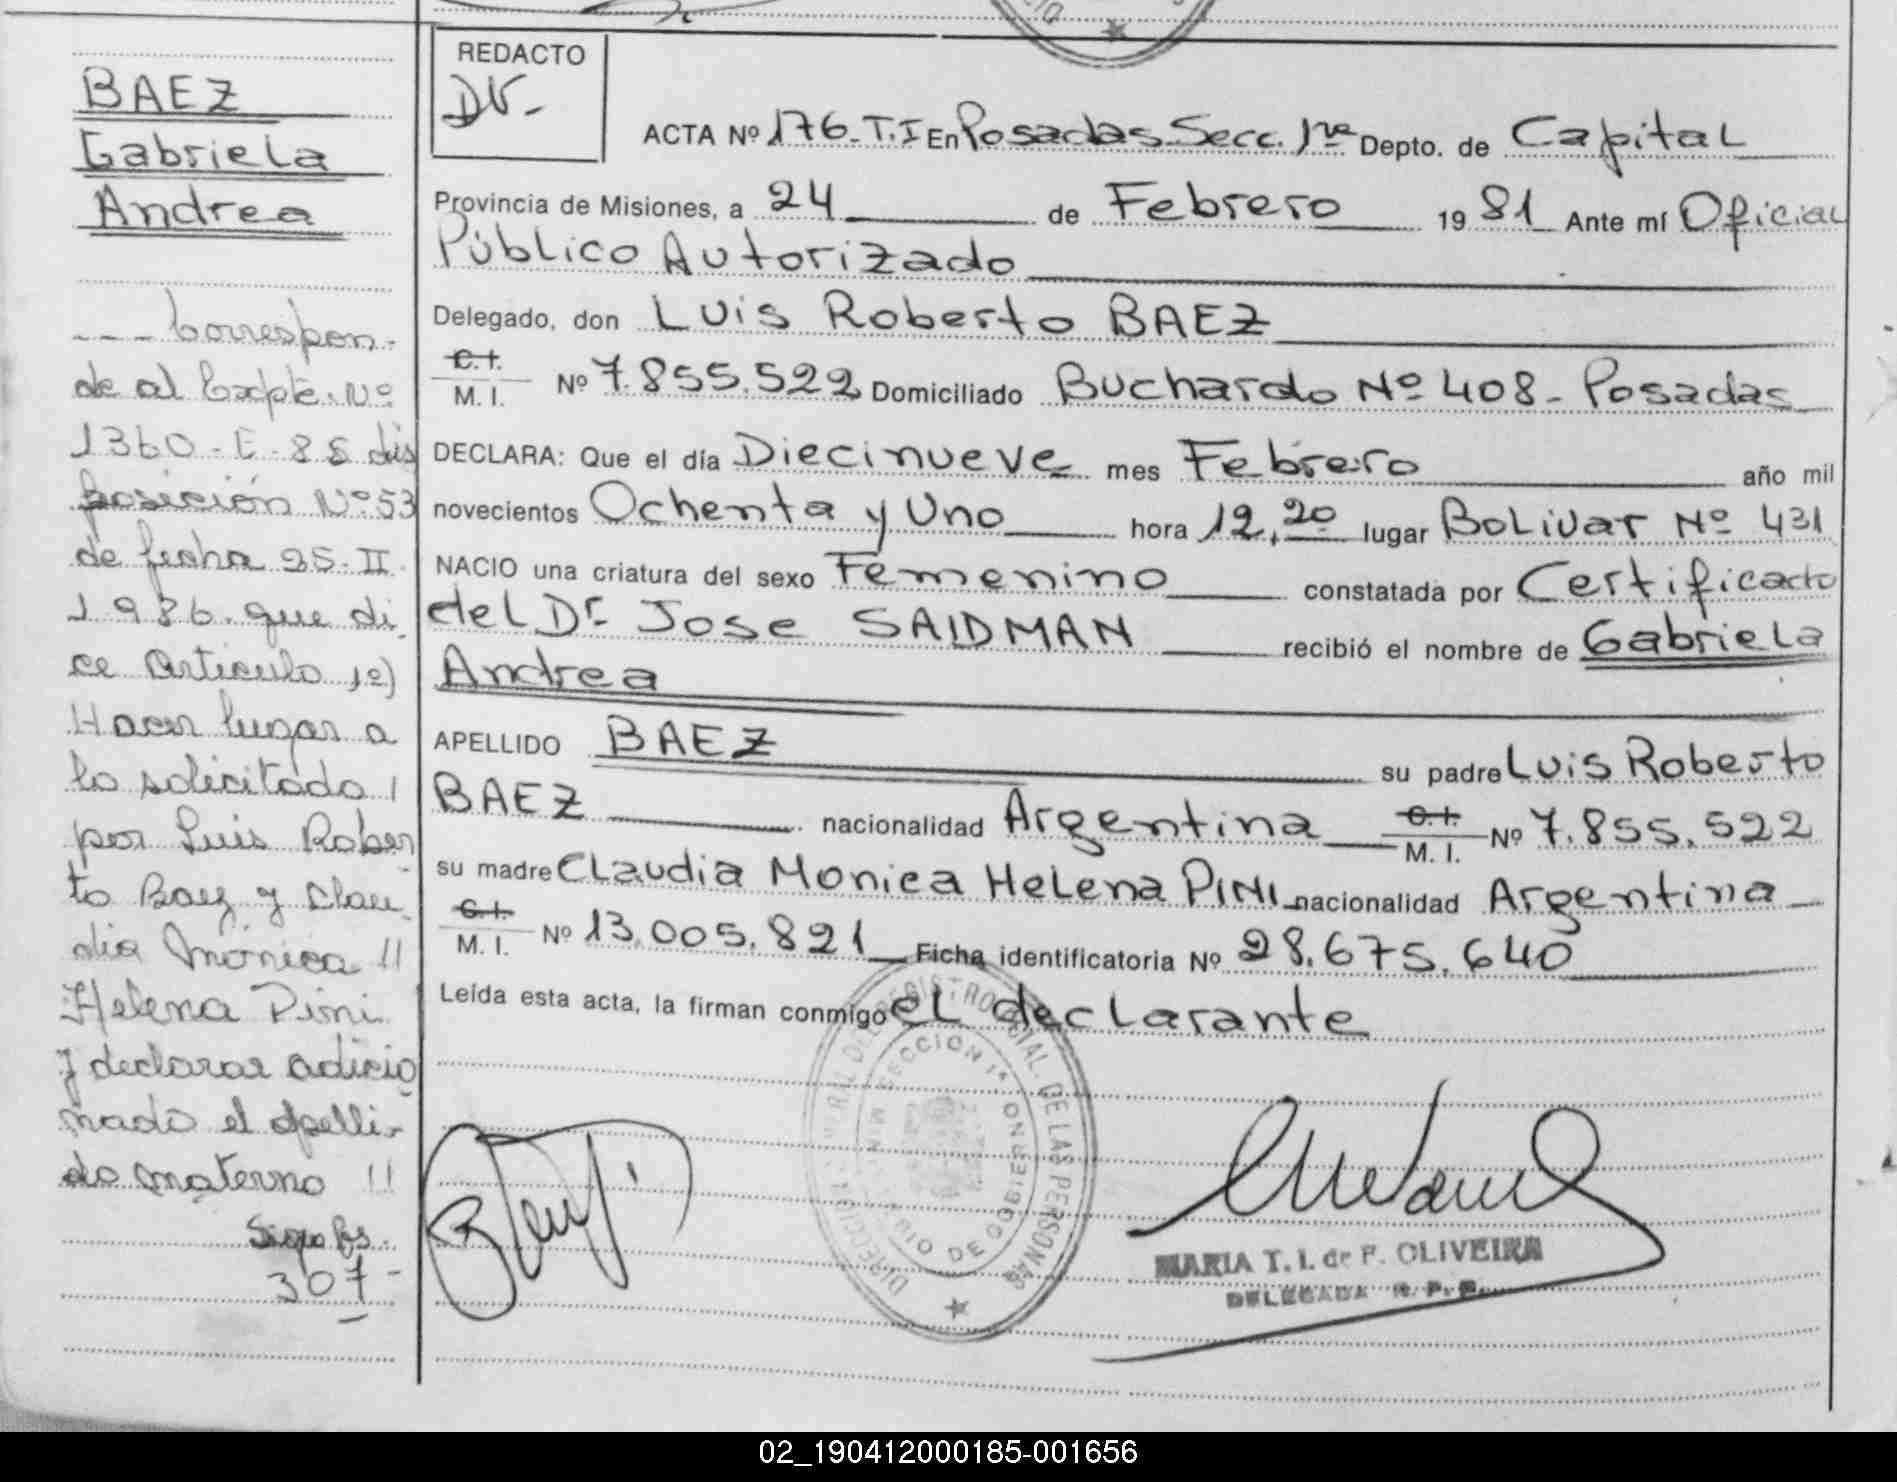 BAEZ
Gabriela
Andrea
--- Correspon-
de al Expte. Nº
1360-E-85 dis
posición Nº 53
de fecha 25-II
1986. que di
ce Artículo 1º)
Hacer lugar a
lo solicitado /
por Luis Rober
to Baez y Clau
dia Mónica //
Helena Pini
y declarar adicio
nado el apelli-
do materno //
Sigue fs.
307-
REDACTO
DV-
ACTA Nº 176-T.I En Posadas Secc. 1ra Depto. de Capital
Provincia de Misiones, a 24 de Febrero 1981 Ante mí Oficial
Público Autorizado
Delegado, don Luis Roberto BAEZ
C.I.
M. I. Nº 7.855.522 Domiciliado Buchardo Nº 408- Posadas
DECLARA: Que el día Diecinueve mes Febrero año mil
novecientos Ochenta y Uno hora 12,20 lugar BoLivar Nº 431
NACIO una criatura del sexo Femenino constatada por Certificado
del Dr. Jose SAIDMAN recibió el nombre de Gabriela
Andrea
APELLIDO BAEZ su padre Luis Roberto
BAEZ nacionalidad Argentina C.I.
M. I. Nº 7.855.522
su madre Claudia Monica Helena PINI nacionalidad Argentina
C.I.
M. I. Nº 13.005.821 Ficha identificatoria Nº 28.675.640
Leída esta acta, la firman conmigo el declarante
DIRECCION GENERAL DEL REGISTRO PROVINCIAL DE LAS PERSONAS
SECCION 1ª
MINISTERIO DE GOBIERNO
MARIA T. I. de F. OLIVEIRA
DELEGADA R. P. P.
02_190412000185-001656